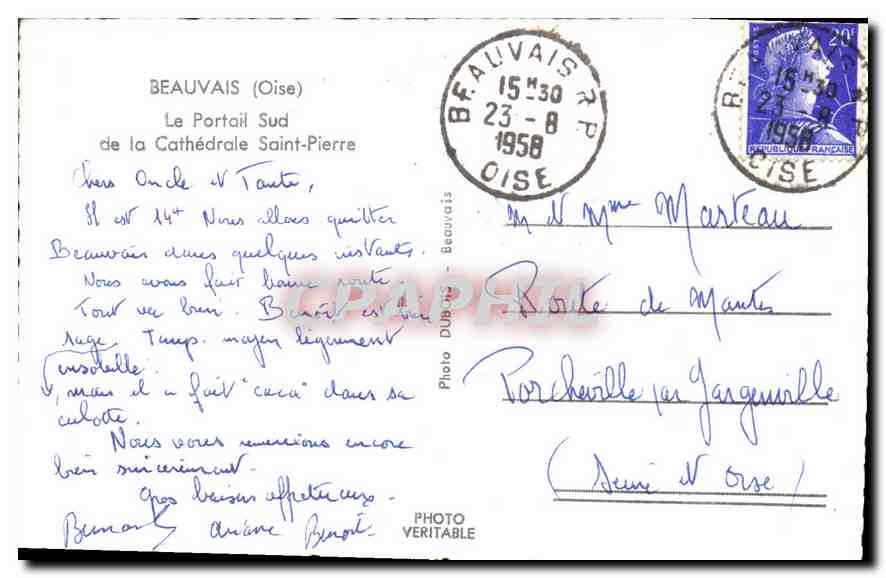 BEAUVAIS (Oise)
Le Portail Sud
de la Cathédrale Saint-Pierre
Chers Oncle et Tante,
Il est 14h Nous allons quitter
Beauvais dans quelques instants.
Nous avons fait bonne route
Tout va bien. Benoît est bien
sage. Temps moyen légèrement
ensoleillé.
mais il a fait "caca" dans sa
culotte.
Nous vous remercions encore
bien sincèrement.
Gros baisers affectueux.
Bernard Ariane Benoît
PHOTO
VERITABLE
Photo DUBOIS - Beauvais
CPAPHIL
BEAUVAIS R.P.
15H30
23-8
1958
OISE
20F
POSTES
REPUBLIQUE FRANÇAISE
15H30
23-8
1958
OISE
M et Mme Marteau
Route de Mantes
Porcheville par Gargenville
(Seine et Oise)